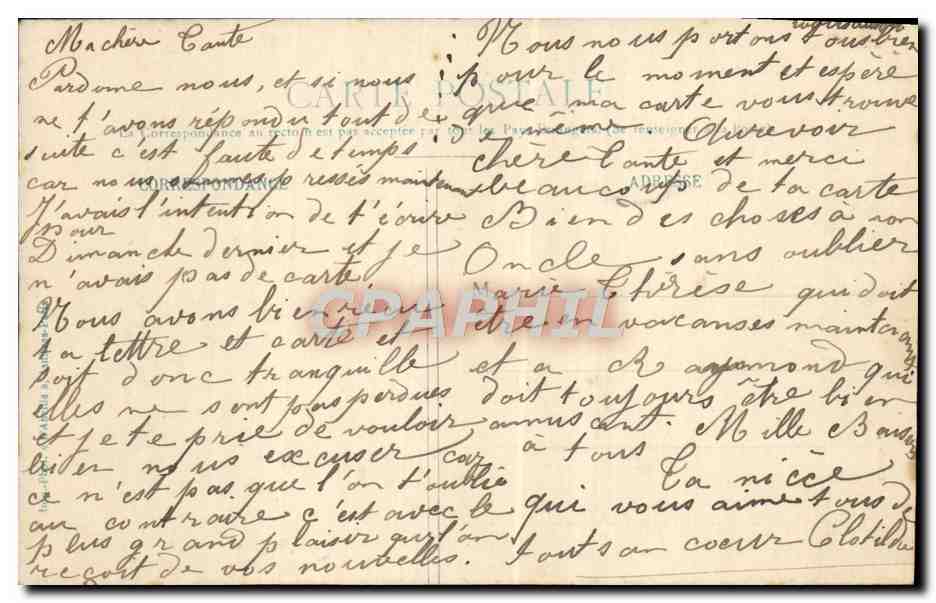 Ma chère Tante
Pardonne nous, et si nous
ne t'avons répondu tout de
suite c'est faute de temps
car nous sommes pressés maintenant
J'avais l'intention de t'écrire
pour
Dimanche dernier et je
n'avais pas de carte
Nous avons bien reçu
ta lettre et carte et
soit donc tranquille
elles ne sont pas perdues
et je te prie de vouloir
bien nous excuser car
ce n'est pas que l'on t'oublie
au contraire c'est avec le
plus grand plaisir qu'l'on
reçoit de vos nouvelles.
Nous nous portons tous bien
pour le moment et espère
que ma carte vous trouve
de même. Aurevoir
chère Tante et merci
beaucoup de ta carte
Bien des choses à mon
Oncle, sans oublier
Marie Thérèse qui doit
être en vacanses maintenant
et a Raymond qui
doit toujours être bien
amusant. Mille Baisers
à tous
Ta nièce
qui vous aime tous de
tout son coeur Clotilde
CARTE POSTALE
La Correspondance au recto n'est pas acceptée par tous les Pays Etrangers (Se renseigner à la Poste)
CORRESPONDANCE
ADRESSE
CPAPHIL